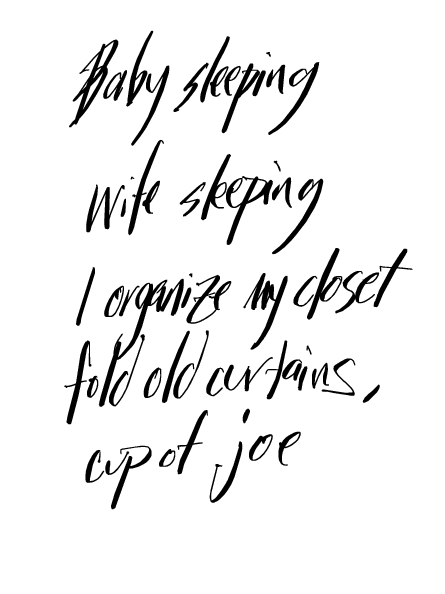 Baby sleeping
wife sleeping
I organize my closet
fold old curtains,
cup of joe